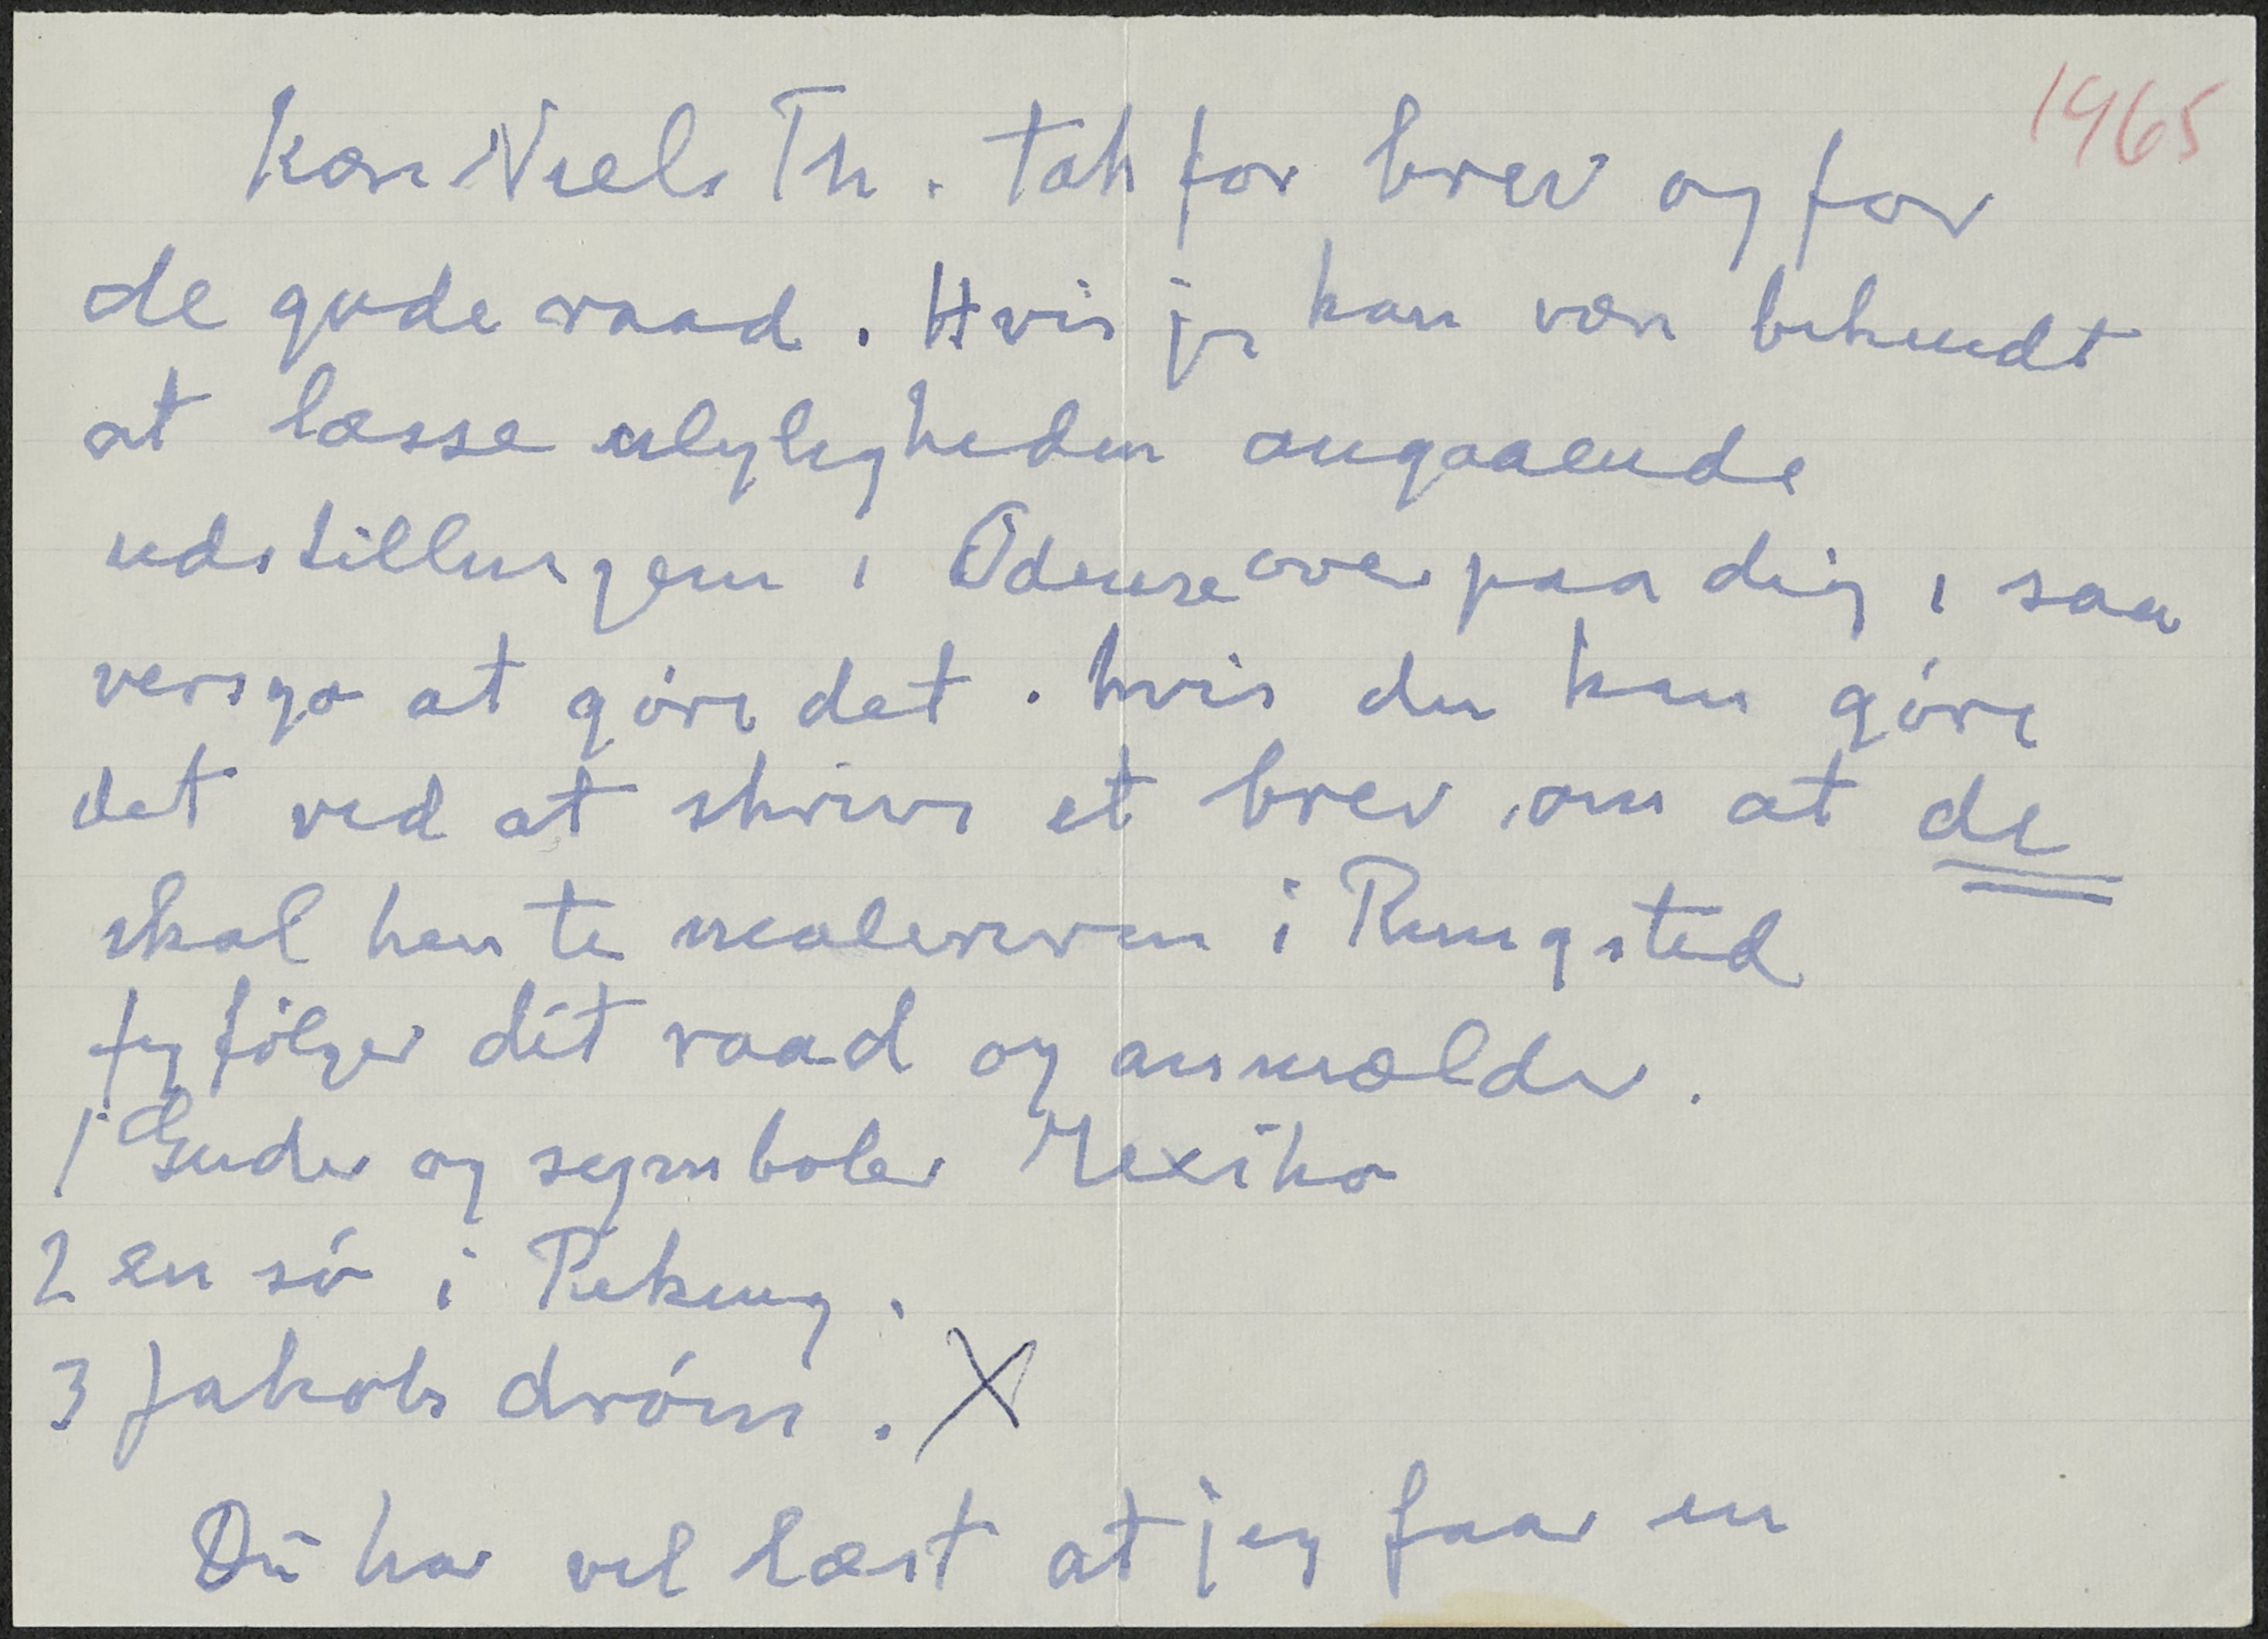 1965
Kære Niels Th. Tak for brev og for
de gode raad. Hvis jeg kan være bekendt
at læsse ulyligheden angaaende
udstillingen i Odense over paa dig, saa
versgo at góre det. hvis du kan góre
det ved at skrive et brev om at de
skal hente malerierne i Rungsted
Jeg fólger dit raad og anmelder.
1 Guder og symboler Mexiko
2 en só i Peking.
3 Jakobs dróm. X
Du har vel læst at jeg faar en